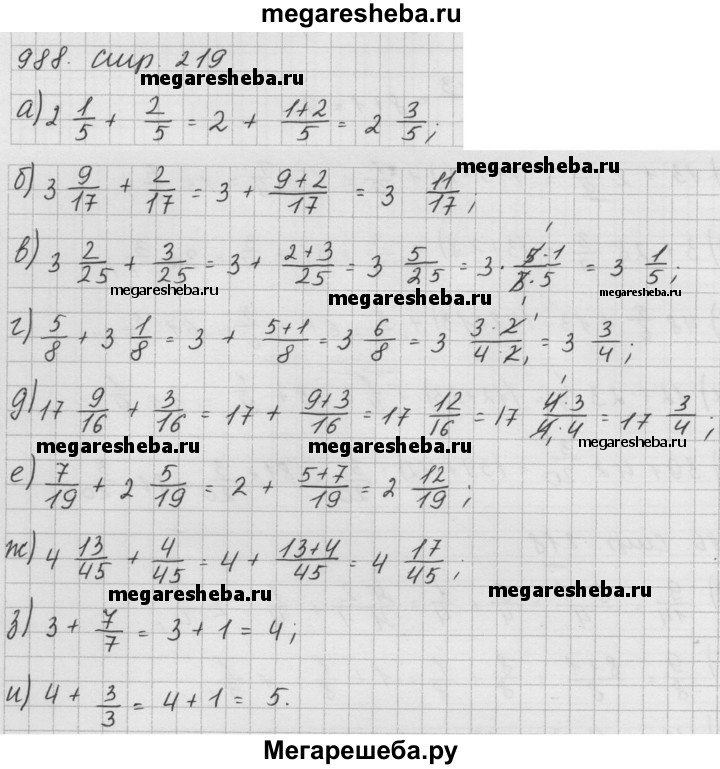 megaresheba.ru
988. стр. 219
megaresheba.ru
а) 2 1/5 + 2/5 = 2 + (1+2)/5 = 2 3/5;
megaresheba.ru
б) 3 9/17 + 2/17 = 3 + (9+2)/17 = 3 11/17;
в) 3 2/25 + 3/25 = 3 + (2+3)/25 = 3 5/25 = 3 · (5·1)/(5·5) = 3 1/5;
megaresheba.ru megaresheba.ru megaresheba.ru
г) 5/8 + 3 1/8 = 3 + (5+1)/8 = 3 6/8 = 3 (3·2)/(4·2) = 3 3/4;
д) 17 9/16 + 3/16 = 17 + (9+3)/16 = 17 12/16 = 17 (4·3)/(4·4) = 17 3/4;
megaresheba.ru megaresheba.ru megaresheba.ru
е) 7/19 + 2 5/19 = 2 + (5+7)/19 = 2 12/19;
ж) 4 13/45 + 4/45 = 4 + (13+4)/45 = 4 17/45;
megaresheba.ru megaresheba.ru
з) 3 + 7/7 = 3 + 1 = 4;
и) 4 + 3/3 = 4 + 1 = 5.
Мегарешеба.ру